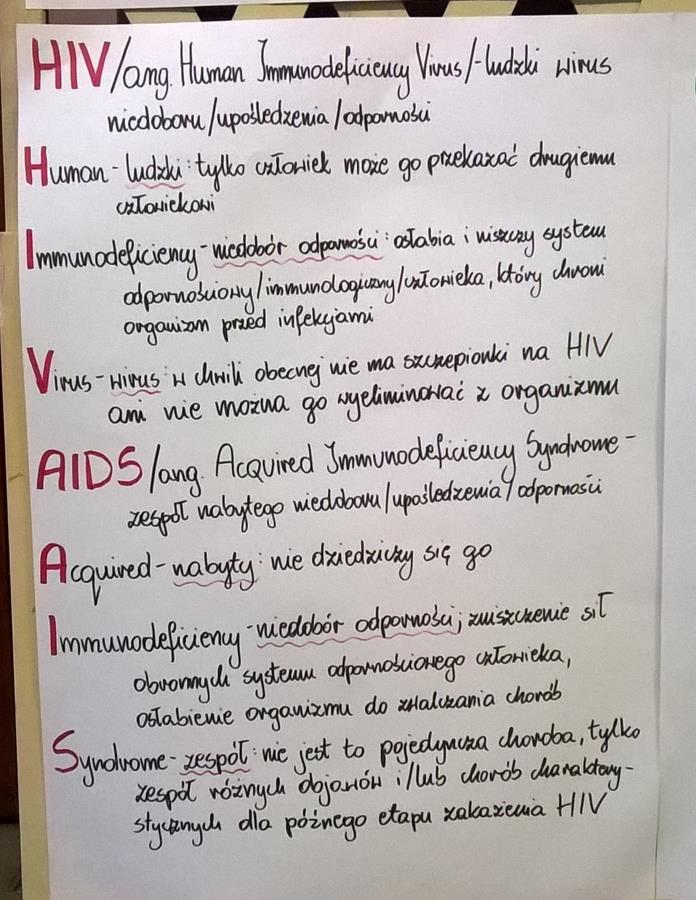 HIV/ang. Human Immunodeficiency Virus/-ludzki wirus
niedoboru/upośledzenia/odporności
Human - ludzki: tylko człowiek może go przekazać drugiemu
człowiekowi
Immunodeficiency - niedobór odporności: osłabia i niszczy system
odpornościowy/immunologiczny/człowieka, który chroni
organizm przed infekcjami
Virus - wirus: w chwili obecnej nie ma szczepionki na HIV
ani nie można go wyeliminować z organizmu
AIDS/ang. Acquired Immunodeficiency Syndrome -
zespół nabytego niedoboru/upośledzenia/odporności
Acquired - nabyty: nie dziedziczy się go
Immunodeficiency - niedobór odporności; zniszczenie sił
obronnych systemu odpornościowego człowieka,
osłabienie organizmu do zwalczania chorób
Syndrome - zespół: nie jest to pojedyncza choroba, tylko
zespół różnych objawów i/lub chorób charaktery-
stycznych dla późnego etapu zakażenia HIV